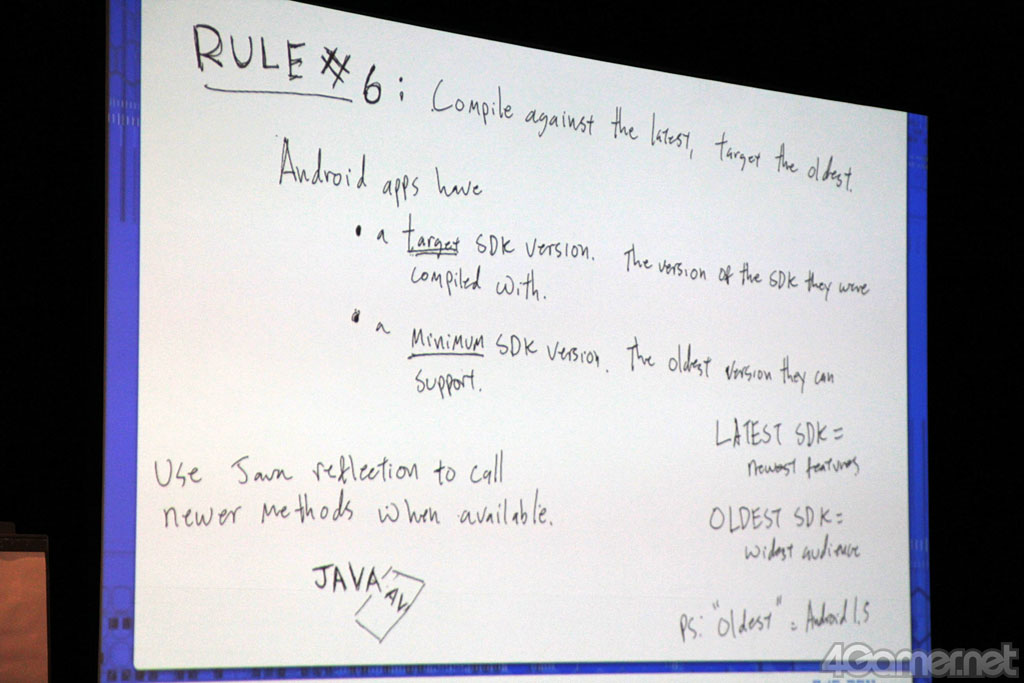 RULE #6: Compile against the latest, target the oldest.
Android apps have
• a target SDK version. The version of the SDK they were
compiled with.
• a minimum SDK version. The oldest version they can
support.
LATEST SDK =
newest features
Use Java reflection to call
newer methods when available.
OLDEST SDK =
widest audience
JAVA
AV
PS: "Oldest" = Android 1.5
4Gamer.net